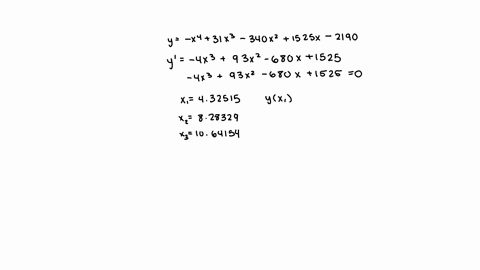 y = -x⁴ + 31x³ - 340x² + 1525x - 2190
y' = -4x³ + 93x² - 680x + 1525
-4x³ + 93x² - 680x + 1525 = 0
x₁ = 4.32515 y(x₁)
x₂ = 8.28329
x₃ = 10.64154